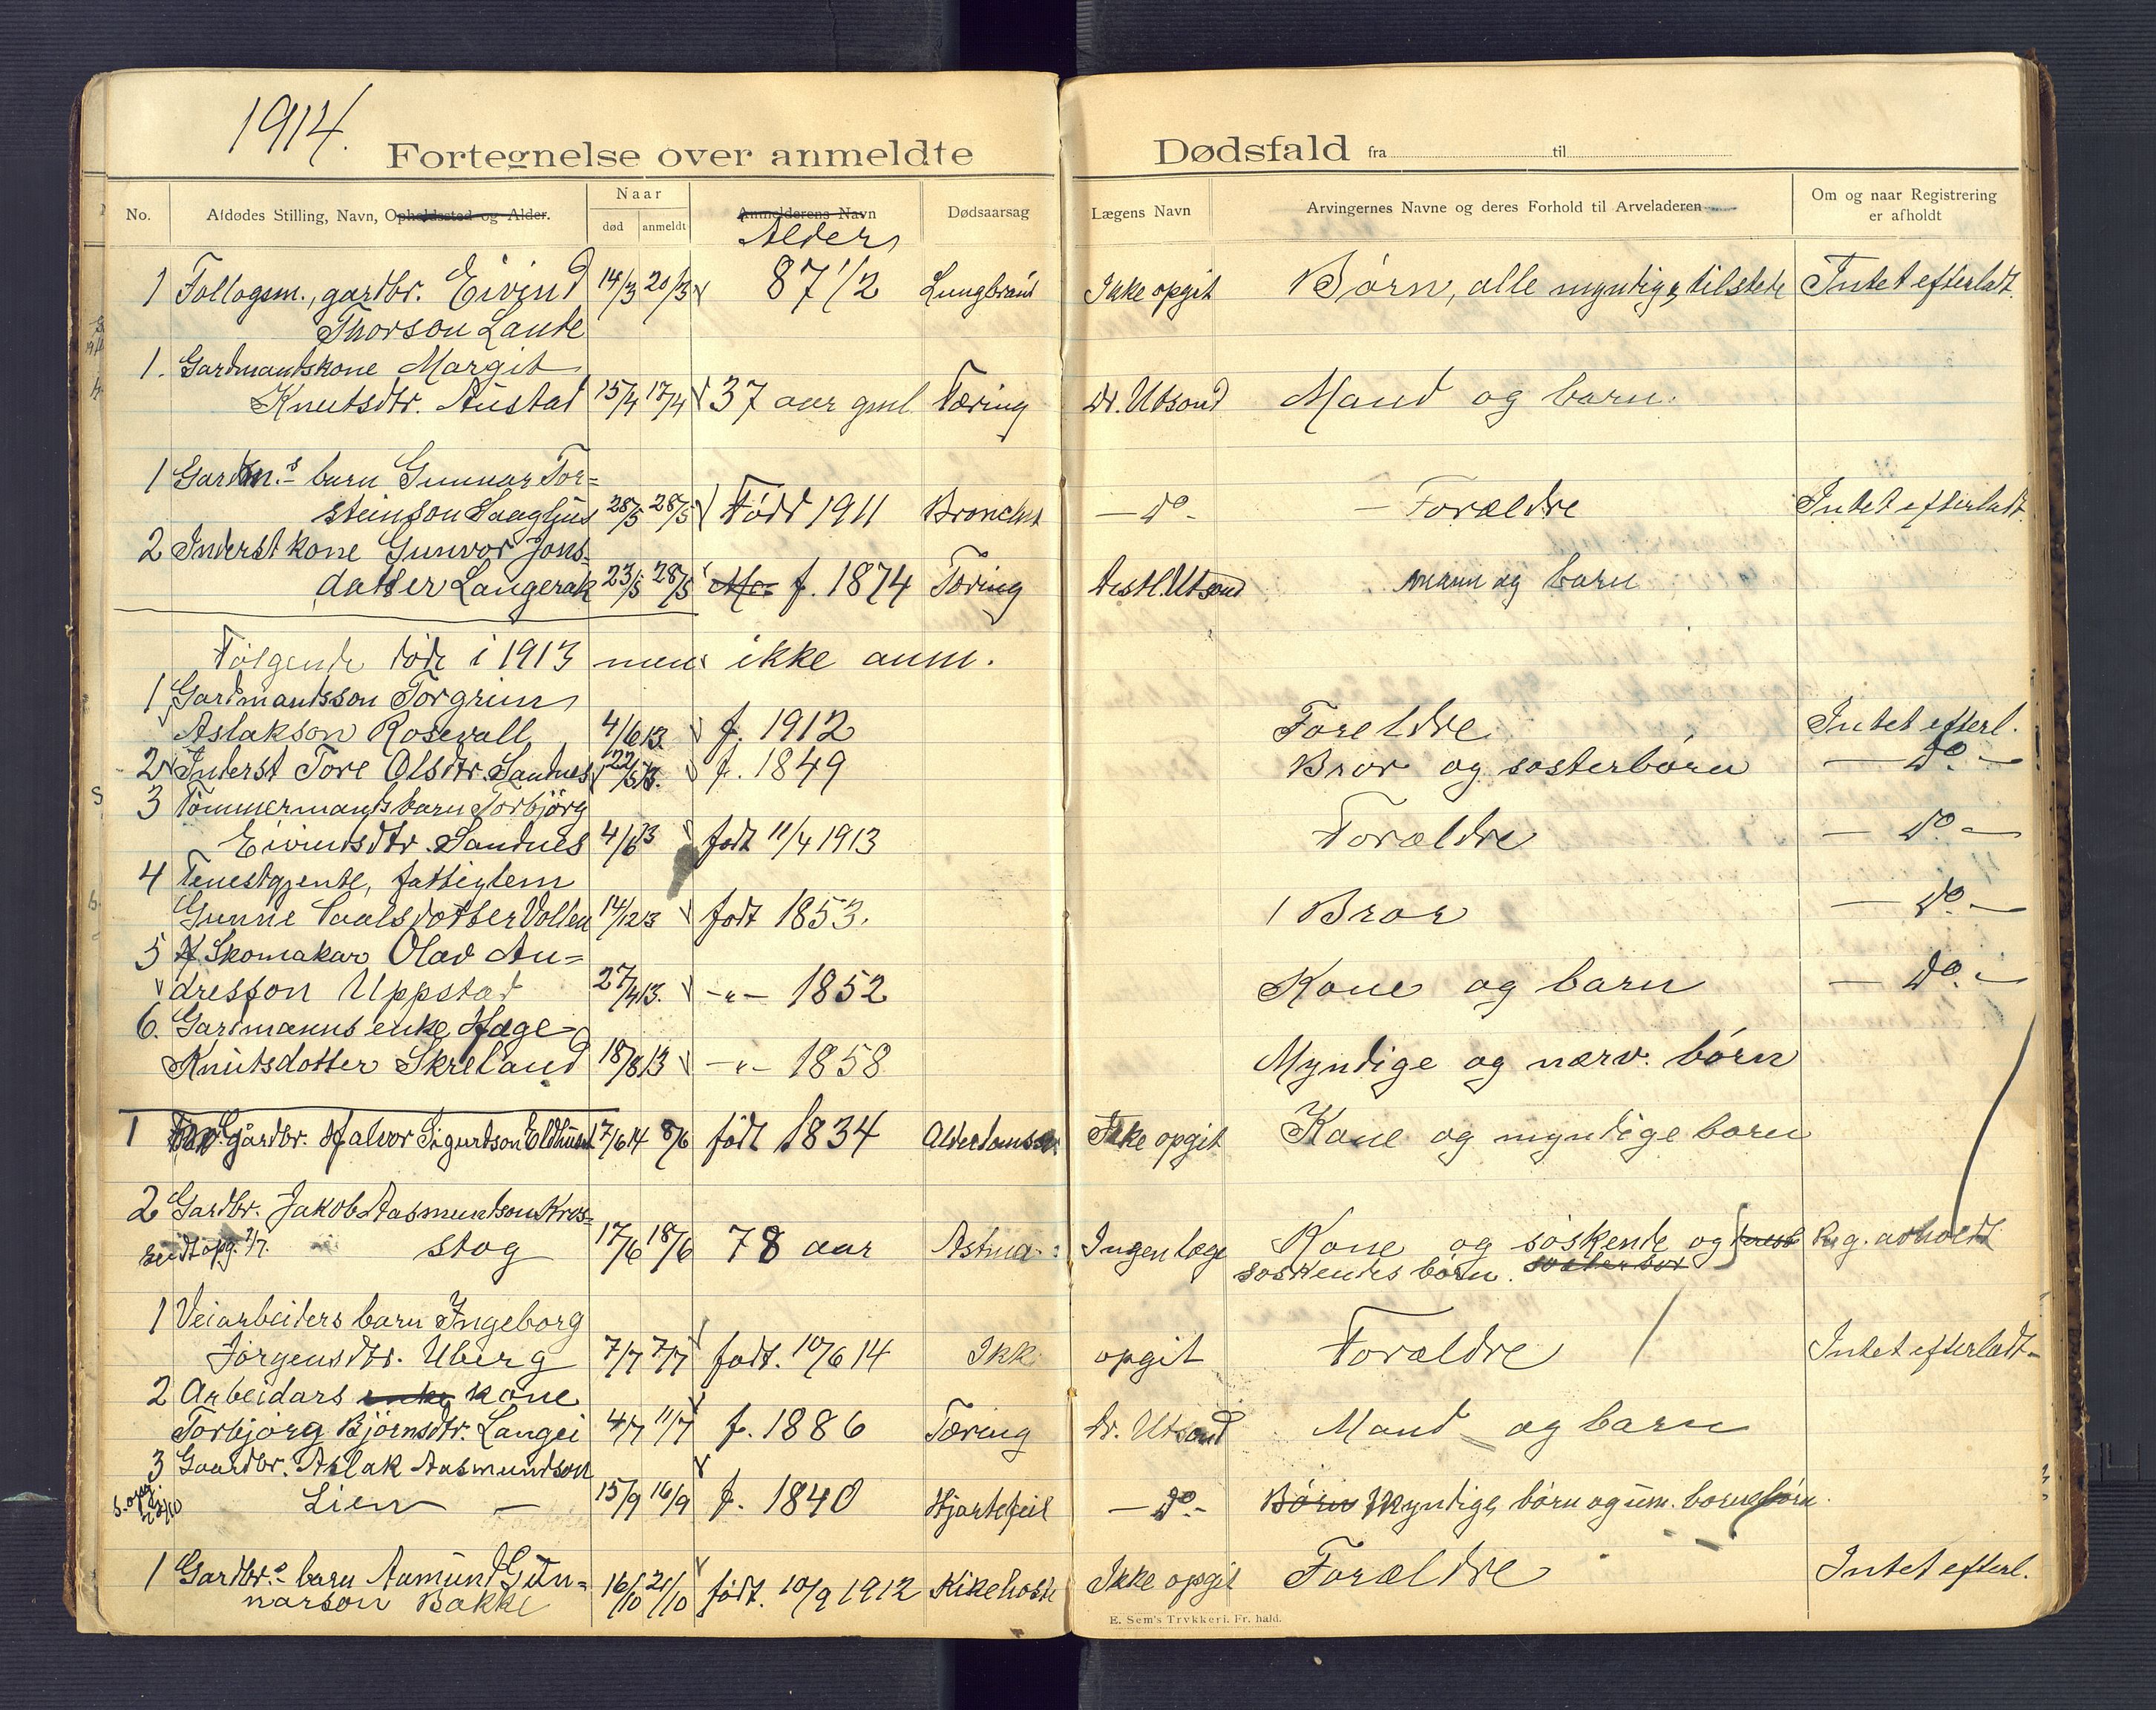 1914.
Fortegnelse over anmeldte Dødsfald fra til
No. Afdødes Stilling, Navn, Opholdssted og Alder. Naar død anmeldt Anmelderens Navn Alder Dødsaarsag Lægens Navn Arvingernes Navne og deres Forhold til Arveladeren Om og naar Registrering er afholdt
1 Follogsm., gardbr. Eivind 14/3 20/3 87 1/2 Lungbrand Ikke opgit Børn, alle myndige, tilstede Intet efterladt.
Thorson Lande
1. Gardmandskone Margit
Knutsdtr. Austad 15/4 17/4 37 aar gml. Tæring Dr. Utsond Mand og barn.
1 Gardm.s barn Gunnar Tor=
steinson Haughus 28/5 28/5 Født 1911 Bronchit — do - — Forældre Intet efterladt.
2 Inderst kone Gunvor Jons-
datter Langerak 23/5 28/5 f. 1874 Tæring Distl. Utsond mann og barn
Følgende døde i 1913 men ikke anm.
1 Gardmandsson Torgrim
Aslakson Rosevall 4/6 13. f. 1912 Foreldre Intet efterl.
2 Inderst Tore Olsdtr. Sandnes 22/5 13. f. 1849 Bror og søsterbørn — do. —
3 Tømmermands barn Torbjörg
Eivindsdtr. Sandnes 4/6 13 født 11/4 1913 Forældre — do —
4 Tenestgjente, fattiglem
Gunne Taalsdotter Vollen 14/12 13 født 1853. 1 Bror — do. —
5 Skomakar Olav An=
dresson Uppstad 27/4 13. -„- 1852 Kone og barn — do. —
6. Gardmanns enke Hæge
Knutsdotter Skreland 18/8 13 -„- 1858 Myndige og nærv. børn
1 gårdbr. Halvor Sigurdson Eldhust 7/6 14 8/6 født 1834 Alderdomssv. Ikke opgit Kone og myndige born
2 Gardbr. Jakob Aasmundson Kros=
Sendt opg. 2/7. stog 17/6 18/6 78 aar Astma Ingen læge Kone og søskende og Reg. avholdt
søskendes børn. søstersøn
1 Veiarbeiders barn Ingeborg
Jörgensdtr. Uberg 7/7 7/7 født. 10/6 14 Ikke opgit Forældre Intet efterladt-
2 Arbeidars enke kone
Torbjörg Björnsdtr. Langei 4/7 11/7 f. 1886 Tæring Dr. Utsond Mand og barn
3 Gaardbr. Aslak Aasmundson
S. opg. 22/10 Lien — 15/9 16/9 f. 1840 Hjartefeil — do. - Børn Myndige børn og um. bornebörn.
1 Gardbr.s barn Aamund Gun=
narson Bakke 16/10 21/10 født. 10/9 1912 Kikehoste Ikke opgit Forældre Intet efterl.
E. Sem's Trykkeri, Fr. hald.